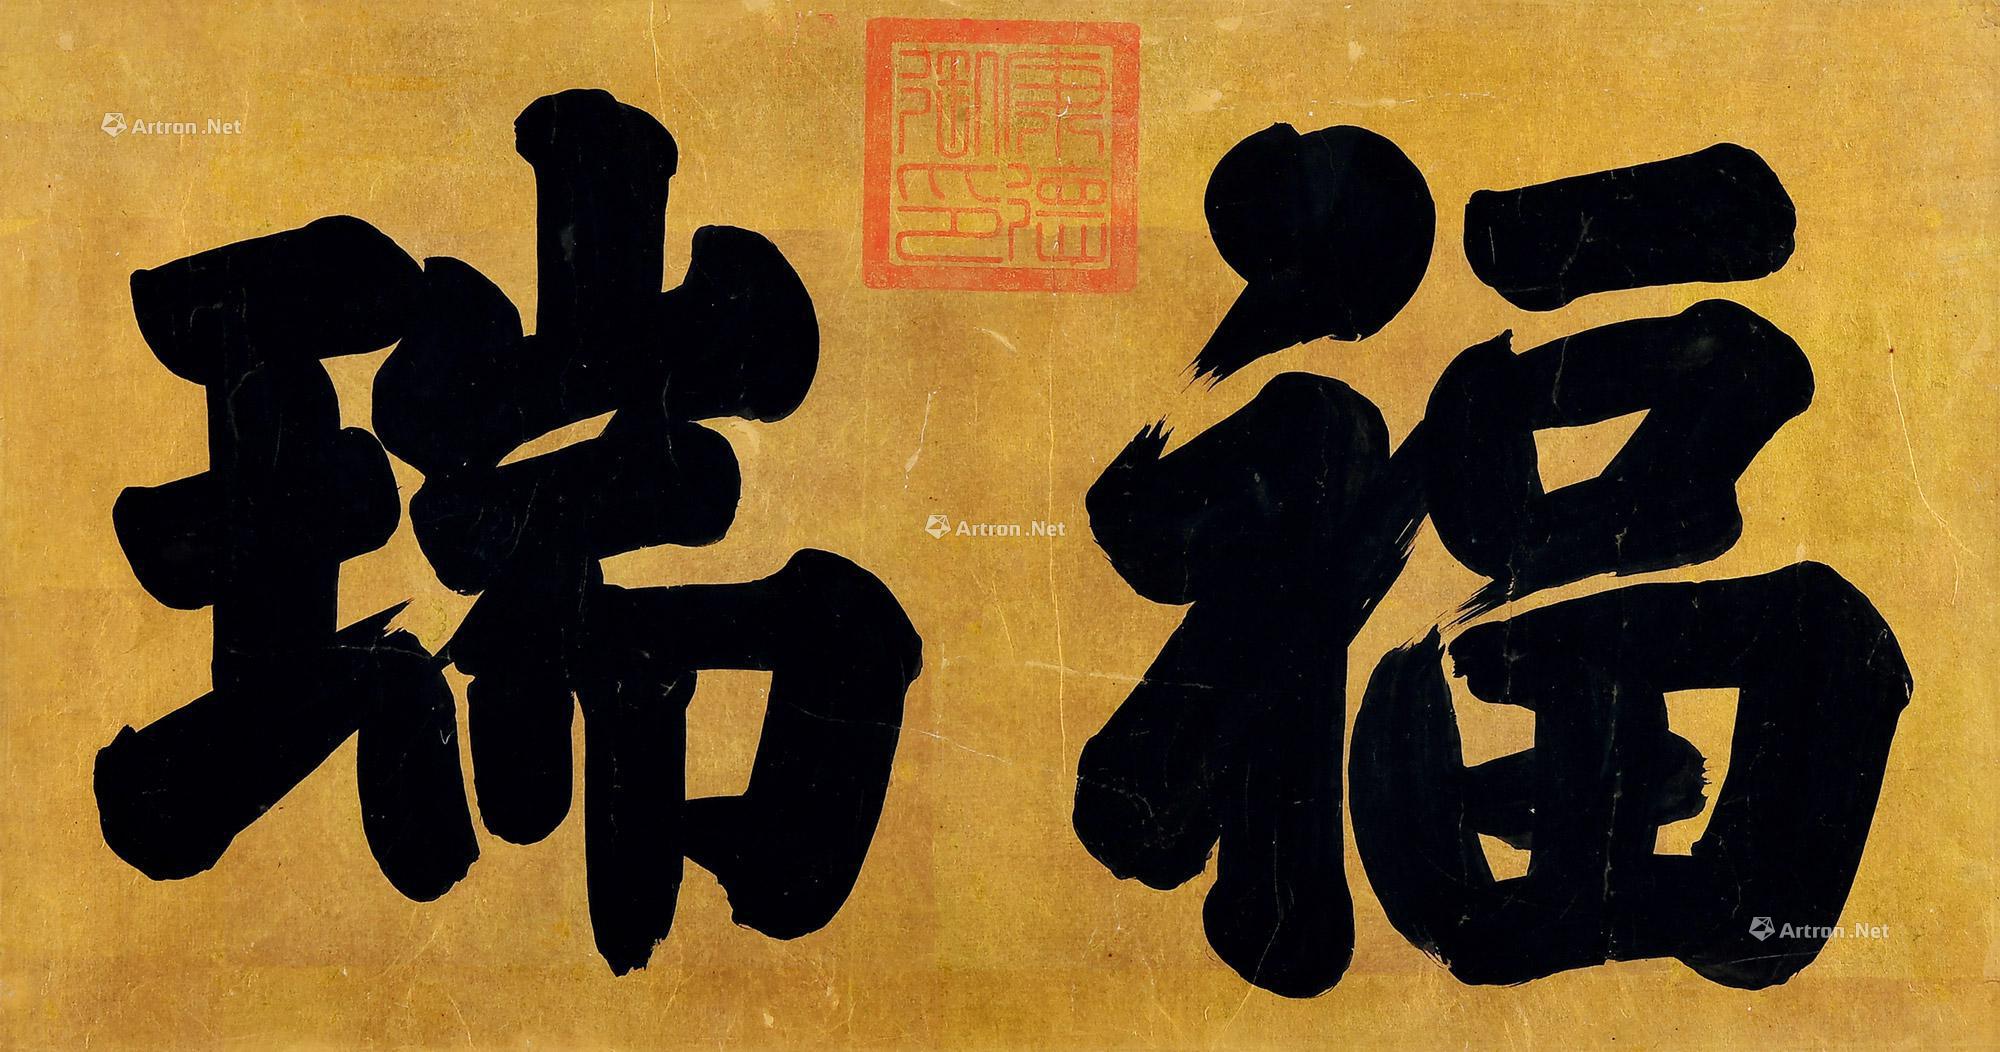 福瑞
康德御印
Artron.Net
Artron.Net
Artron.Net